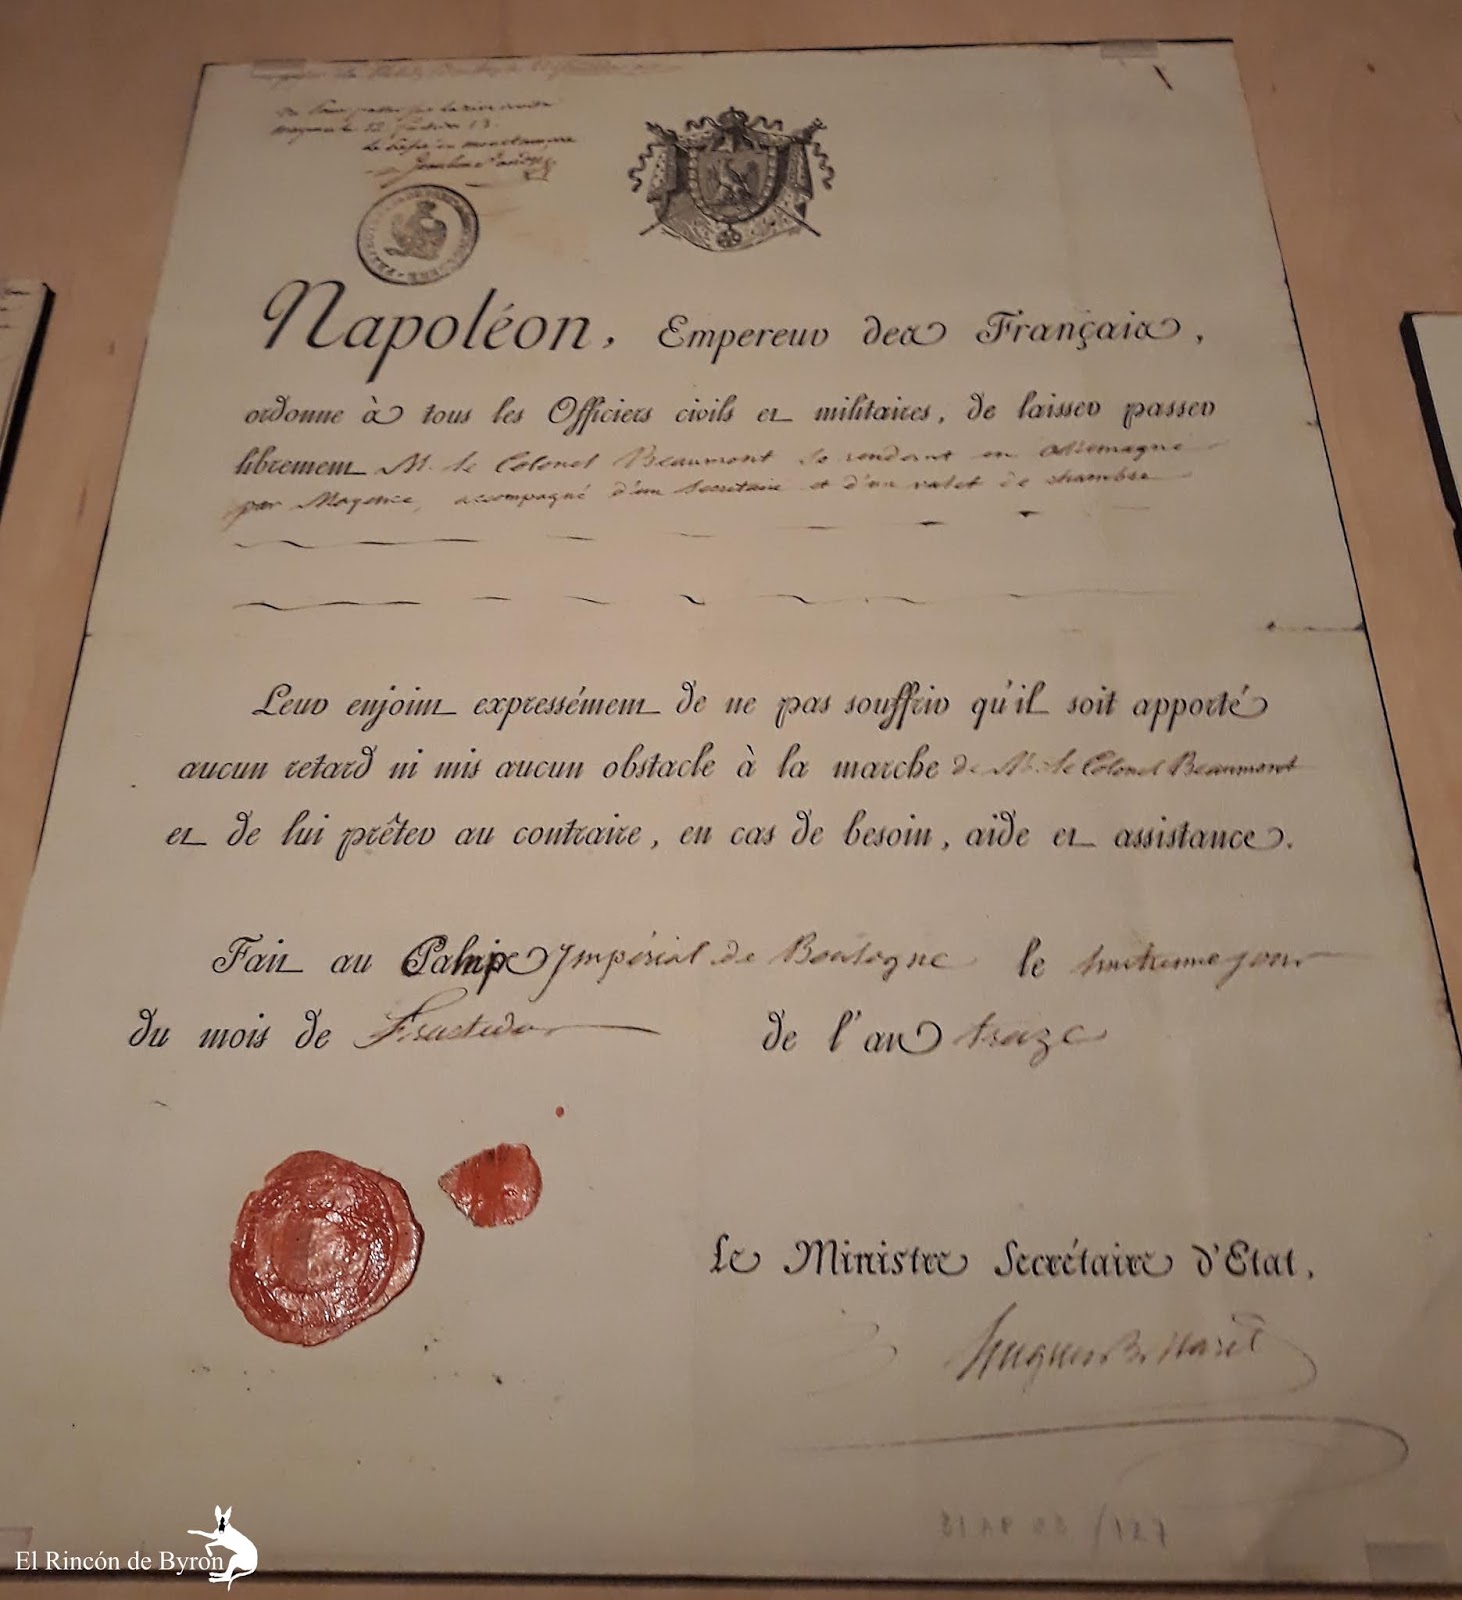 le 12 fructidor 13.
Napoléon, Empereur des Français,
ordonne à tous les Officiers civils et militaires, de laisser passer
librement M. le Colonel Beaumont se rendant en allemagne
par Mayence, accompagné d'un Secretaire et d'un valet de chambre
Leur enjoint expressément de ne pas souffrir qu'il soit apporté
aucun retard ni mis aucun obstacle à la marche de M. le Colonel Beaumont
et de lui prêter au contraire, en cas de besoin, aide et assistance.
Fait au Camp Impérial de Boulogne le huitieme jour
du mois de Fructidor de l'an treize
Le Ministre Secrétaire d'Etat,
Hugues B. Maret
El Rincón de Byron